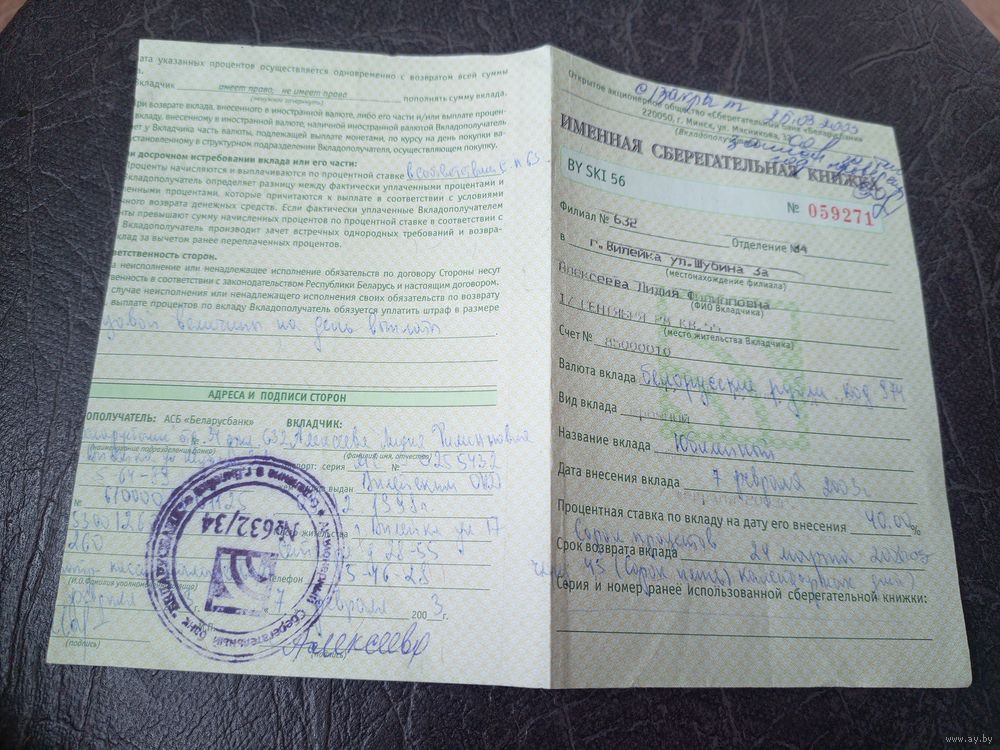 ата указанных процентов осуществляется одновременно с возвратом всей суммы
а.
Вкладчик имеет право, не имеет право пополнять сумму вклада.
(ненужное зачеркнуть)
При возврате вклада, внесенного в иностранной валюте, либо его части и/или выплате процен-
вкладу, внесенному в иностранной валюте, наличной иностранной валютой Вкладополучатель
ет у Вкладчика часть валюты, подлежащей выплате монетами, по курсу на день покупки ва-
становленному в структурном подразделении Вкладополучателя, осуществляющем покупку.
ри досрочном истребовании вклада или его части:
роценты начисляются и выплачиваются по процентной ставке в соответствии с п 63
Вкладополучатель определяет разницу между фактически уплаченными процентами и
енными процентами, которые причитаются к выплате в соответствии с условиями
чного возврата денежных средств. Если фактически уплаченные Вкладополучателем
нты превышают сумму начисленных процентов по процентной ставке в соответствии с
Вкладополучатель производит зачет встречных однородных требований и возвра-
клад за вычетом ранее переплаченных процентов.
ветственность сторон.
а неисполнение или ненадлежащее исполнение обязательств по договору Стороны несут
венность в соответствии с законодательством Республики Беларусь и настоящим договором.
случае неисполнения или ненадлежащего исполнения своих обязательств по возврату
выплате процентов по вкладу Вкладополучатель обязуется уплатить штраф в размере
зовой величины на день выплаты
АДРЕСА И ПОДПИСИ СТОРОН
ДОПОЛУЧАТЕЛЬ: АСБ «Беларусбанк» ВКЛАДЧИК:
632 Алексеева Лидия Филипповна
(наименование подразделения банка) (фамилия, имя, отчество)
порт: серия № 0255432
выдан Вилейским
№ 2 1998г
жительства г Вилейка ул 17
260 д 28-55
телефон 3-46-28
(И.О.Фамилия уполномоченного лица)
7 февраля 2003 г.
М.П.
Алексеева
(подпись) (подпись)
№632/34
с/закрыт 25.03.2003
Открытое акционерное общество «Сберегательный банк «Беларусбанк»
220050, г. Минск, ул. Мясникова,
(Вкладополучатель)
ИМЕННАЯ СБЕРЕГАТЕЛЬНАЯ КНИЖКА
BY SKI 56
№ 059271
Филиал № 632 Отделение № 34
в г.Вилейка ул.Шубина 3а
(местонахождение филиала)
Алексеева Лидия Филипповна
(ФИО Вкладчика)
17 СЕНТЯБРЯ
(место жительства Вкладчика)
Счет № 85000010
Валюта вклада белорусские рубли код 974
Вид вклада срочный
Название вклада Юбилейный
Дата внесения вклада 7 февраля 2003г
Процентная ставка по вкладу на дату его внесения 40.00 %
Сорок процентов
Срок возврата вклада 24 марта 2003
через 45 (Сорок пять) календарных дней
Серия и номер ранее использованной сберегательной книжки:
www.ay.by